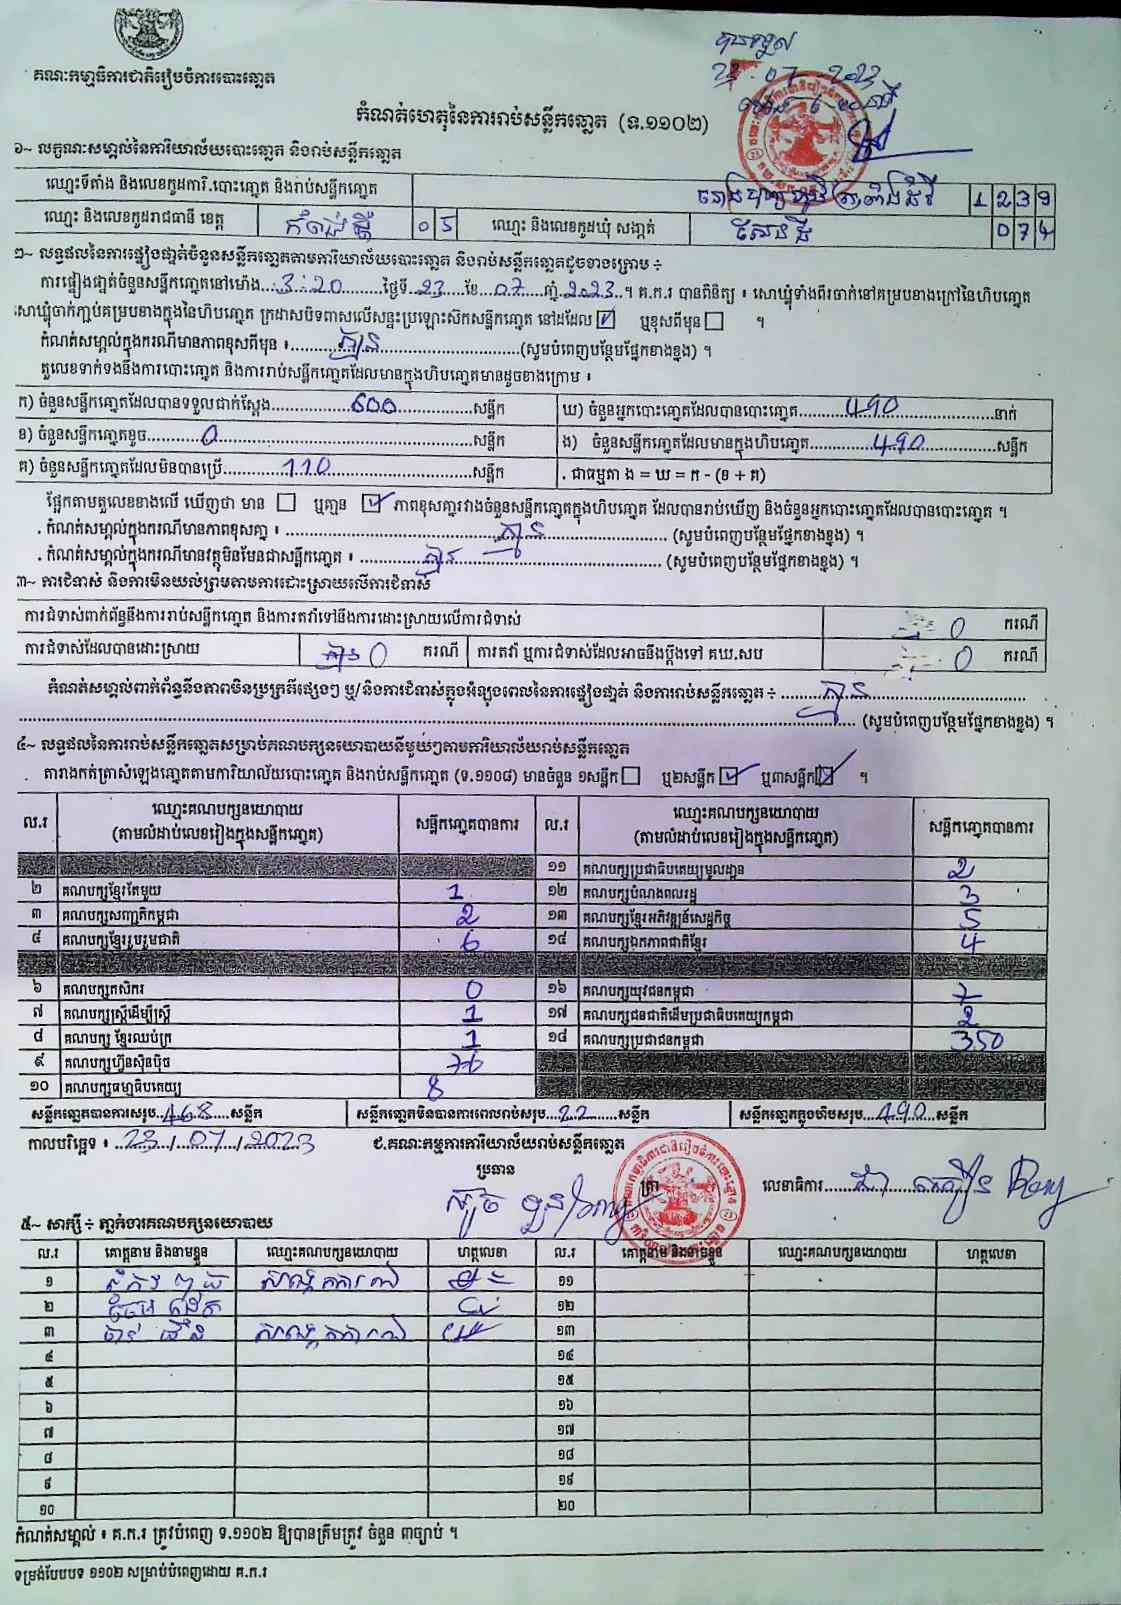 គណៈកម្មាធិការជាតិរៀបចំការបោះឆ្នោត
បានទទួល
23-07-2023
កំណត់ហេតុនៃការរាប់សន្លឹកឆ្នោត (ទ.១១០២)
១~ លក្ខណៈសម្គាល់នៃការិយាល័យបោះឆ្នោត និងរាប់សន្លឹកឆ្នោត
ឈ្មោះទីតាំង និងលេខកូដការិ.បោះឆ្នោត និងរាប់សន្លឹកឆ្នោត 1239
ឈ្មោះ និងលេខកូដរាជធានី ខេត្ត កំពង់ស្ពឺ 05 ឈ្មោះ និងលេខកូដឃុំ សង្កាត់ សែនដី 074
២~ លទ្ធផលនៃការផ្ទៀងផ្ទាត់ចំនួនសន្លឹកឆ្នោតតាមការិយាល័យបោះឆ្នោត និងរាប់សន្លឹកឆ្នោតដូចខាងក្រោម ÷
ការផ្ទៀងផ្ទាត់ចំនួនសន្លឹកឆ្នោតនៅម៉ោង...3:20...ថ្ងៃទី.23...ខែ...07...ឆ្នាំ.2023..។ គ.ក.រ បានពិនិត្យ ៖ សោឃ្មុំទាំងពីរចាក់នៅគម្របខាងក្រៅនៃហិបឆ្នោត
សោឃ្មុំចាក់ភ្ជាប់គម្របខាងក្នុងនៃហិបឆ្នោត ក្រដាសបិទពាសលើសន្ទះប្រឡោះស៊កសន្លឹកឆ្នោត នៅដដែល ☑ ឬខុសពីមុន ☐ ។
កំណត់សម្គាល់ក្នុងករណីមានភាពខុសពីមុន ៖...គ្មាន...(សូមបំពេញបន្ថែមផ្នែកខាងខ្នង) ។
តួលេខទាក់ទងនឹងការបោះឆ្នោត និងការរាប់សន្លឹកឆ្នោតដែលមានក្នុងហិបឆ្នោតមានដូចខាងក្រោម ៖
ក) ចំនួនសន្លឹកឆ្នោតដែលបានទទួលជាក់ស្តែង...600...សន្លឹក ឃ) ចំនួនអ្នកបោះឆ្នោតដែលបានបោះឆ្នោត...490...នាក់
ខ) ចំនួនសន្លឹកឆ្នោតខូច...0...សន្លឹក ង) ចំនួនសន្លឹកឆ្នោតដែលមានក្នុងហិបឆ្នោត...490...សន្លឹក
គ) ចំនួនសន្លឹកឆ្នោតដែលមិនបានប្រើ...110...សន្លឹក . ជាធម្មតា ង = ឃ = ក - (ខ + គ)
ផ្អែកតាមតួលេខខាងលើ ឃើញថា មាន ☐ ឬគ្មាន ☑ ភាពខុសគ្នារវាងចំនួនសន្លឹកឆ្នោតក្នុងហិបឆ្នោត ដែលបានរាប់ឃើញ និងចំនួនអ្នកបោះឆ្នោតដែលបានបោះឆ្នោត ។
. កំណត់សម្គាល់ក្នុងករណីមានភាពខុសគ្នា ៖ ...គ្មាន... (សូមបំពេញបន្ថែមផ្នែកខាងខ្នង) ។
. កំណត់សម្គាល់ក្នុងករណីមានវត្ថុមិនមែនជាសន្លឹកឆ្នោត ៖ ...គ្មាន... (សូមបំពេញបន្ថែមផ្នែកខាងខ្នង) ។
៣~ ការជំទាស់ និងការមិនយល់ព្រមតាមការដោះស្រាយលើការជំទាស់
ការជំទាស់ពាក់ព័ន្ធនឹងការរាប់សន្លឹកឆ្នោត និងការតវ៉ាទៅនឹងការដោះស្រាយលើការជំទាស់ 0 ករណី
ការជំទាស់ដែលបានដោះស្រាយ 0 ករណី ការតវ៉ា ឬការជំទាស់ដែលអាចនឹងប្តឹងទៅ គឃ.សប 0 ករណី
កំណត់សម្គាល់ពាក់ព័ន្ធនឹងភាពមិនប្រក្រតីផ្សេងៗ ឬ/និងការជំទាស់ក្នុងអំឡុងពេលនៃការផ្ទៀងផ្ទាត់ និងការរាប់សន្លឹកឆ្នោត ÷ ...គ្មាន...
... (សូមបំពេញបន្ថែមផ្នែកខាងខ្នង) ។
៤~ លទ្ធផលនៃការរាប់សន្លឹកឆ្នោតសម្រាប់គណបក្សនយោបាយនីមួយៗតាមការិយាល័យរាប់សន្លឹកឆ្នោត
តារាងកត់ត្រាសំឡេងឆ្នោតតាមការិយាល័យបោះឆ្នោត និងរាប់សន្លឹកឆ្នោត (ទ.១១០៨) មានចំនួន ១សន្លឹក ☐ ឬ២សន្លឹក ☑ ឬ៣សន្លឹក ☑ ។
ល.រ ឈ្មោះគណបក្សនយោបាយ (តាមលំដាប់លេខរៀងក្នុងសន្លឹកឆ្នោត) សន្លឹកឆ្នោតបានការ ល.រ ឈ្មោះគណបក្សនយោបាយ (តាមលំដាប់លេខរៀងក្នុងសន្លឹកឆ្នោត) សន្លឹកឆ្នោតបានការ
១១ គណបក្សប្រជាធិបតេយ្យមូលដ្ឋាន 2
២ គណបក្សខ្មែរតែមួយ 1 ១២ គណបក្សបំណងពលរដ្ឋ 3
៣ គណបក្សសញ្ជាតិកម្ពុជា 2 ១៣ គណបក្សខ្មែរអភិវឌ្ឍន៍សេដ្ឋកិច្ច 5
៤ គណបក្សខ្មែររួបរួមជាតិ 6 ១៤ គណបក្សឯកភាពជាតិខ្មែរ 4
៦ គណបក្សកសិករ 0 ១៦ គណបក្សយុវជនកម្ពុជា 7
៧ គណបក្សស្ត្រីដើម្បីស្ត្រី 1 ១៧ គណបក្សជនជាតិដើមប្រជាធិបតេយ្យកម្ពុជា 2
៨ គណបក្ស ខ្មែរឈប់ក្រ 1 ១៨ គណបក្សប្រជាជនកម្ពុជា 350
៩ គណបក្សហ៊្វុនស៊ិនប៉ិច 76
១០ គណបក្សធម្មាធិបតេយ្យ 8
សន្លឹកឆ្នោតបានការសរុប...468...សន្លឹក សន្លឹកឆ្នោតមិនបានការពេលរាប់សរុប...22...សន្លឹក សន្លឹកឆ្នោតក្នុងហិបសរុប...490...សន្លឹក
កាលបរិច្ឆេទ ៖ ...23.../...07.../...2023 ជ.គណៈកម្មការការិយាល័យរាប់សន្លឹកឆ្នោត
ប្រធាន
ត្រា លេខាធិការ
៥~ សាក្សី ÷ ភ្នាក់ងារគណបក្សនយោបាយ
ល.រ គោត្តនាម និងនាមខ្លួន ឈ្មោះគណបក្សនយោបាយ ហត្ថលេខា ល.រ គោត្តនាម និងនាមខ្លួន ឈ្មោះគណបក្សនយោបាយ ហត្ថលេខា
១ ១១
២ ១២
៣ ១៣
៤ ១៤
៥ ១៥
៦ ១៦
៧ ១៧
៨ ១៨
៩ ១៩
១០ ២០
កំណត់សម្គាល់ ៖ គ.ក.រ ត្រូវបំពេញ ទ.១១០២ ឱ្យបានត្រឹមត្រូវ ចំនួន ៣ច្បាប់ ។
ទម្រង់បែបបទ ១១០២ សម្រាប់បំពេញដោយ គ.ក.រ